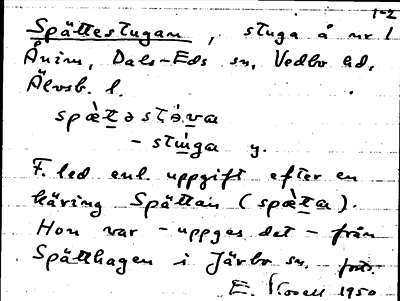 1-2
Spättestugan, stuga å nr 1
Ånim, Dals-Eds sn, Vedbo hd,
Älvsb. l.
spæ̀təstə́va
- stúga y.
F. led enl. uppgift efter en
käring Spättan (spæ̀ta).
Hon var - uppges det - från
Spätthagen i Järbo sn.
E. Rosell 1950